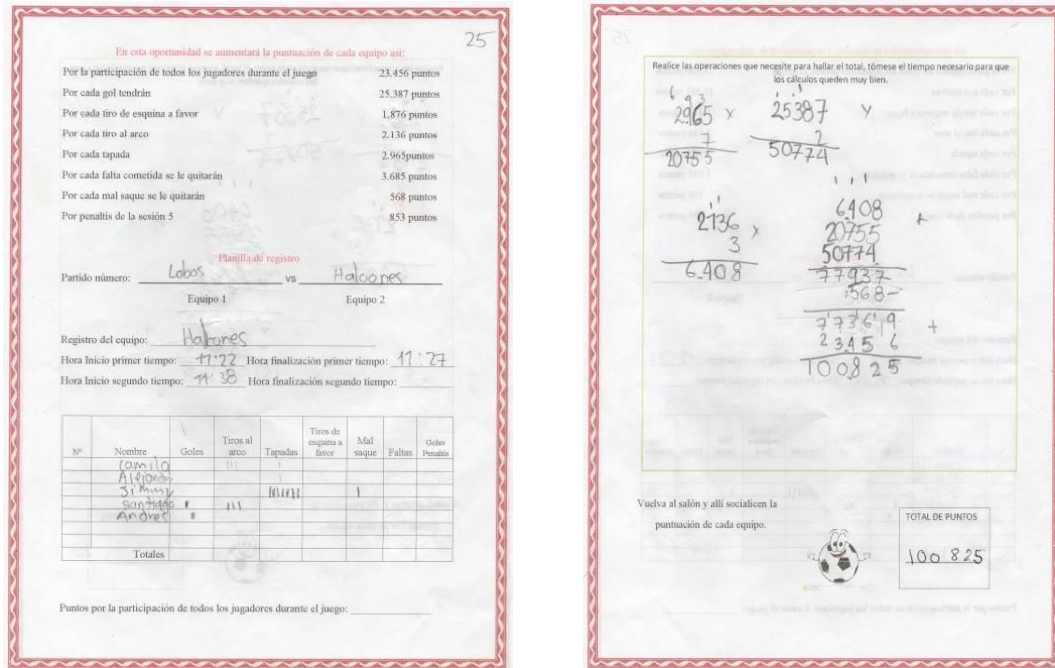 25
En esta oportunidad se aumentará la puntuación de cada equipo así:
Por la participación de todos los jugadores durante el juego 23.456 puntos
Por cada gol tendrán 25.387 puntos
Por cada tiro de esquina a favor 1.876 puntos
Por cada tiro al arco 2.136 puntos
Por cada tapada 2.965puntos
Por cada falta cometida se le quitarán 3.685 puntos
Por cada mal saque se le quitarán 568 puntos
Por penaltis de la sesión 5 853 puntos
Planilla de registro
Partido número: Lobos vs Halcones
Equipo 1 Equipo 2
Registro del equipo: Halcones
Hora Inicio primer tiempo: 11:22 Hora finalización primer tiempo: 11:27
Hora Inicio segundo tiempo: 11:38 Hora finalización segundo tiempo:
N° Nombre Goles Tiros al arco Tapadas Tiros de esquina a favor Mal saque Faltas Goles Penaltis
Camilo III I
Alejandro I
Jimmy IIIIIII I
Santiago I III
Andres I
Totales
Puntos por la participación de todos los jugadores durante el juego:
Realice las operaciones que necesite para hallar el total, tómese el tiempo necesario para que
los cálculos queden muy bien.
2965 x 25387 x
7 2
20755 50774
2136 x
3
6.408
6.408 +
20755
50774
77937
568-
77369 +
23456
100825
Vuelva al salón y allí socialicen la
puntuación de cada equipo.
TOTAL DE PUNTOS
100 825